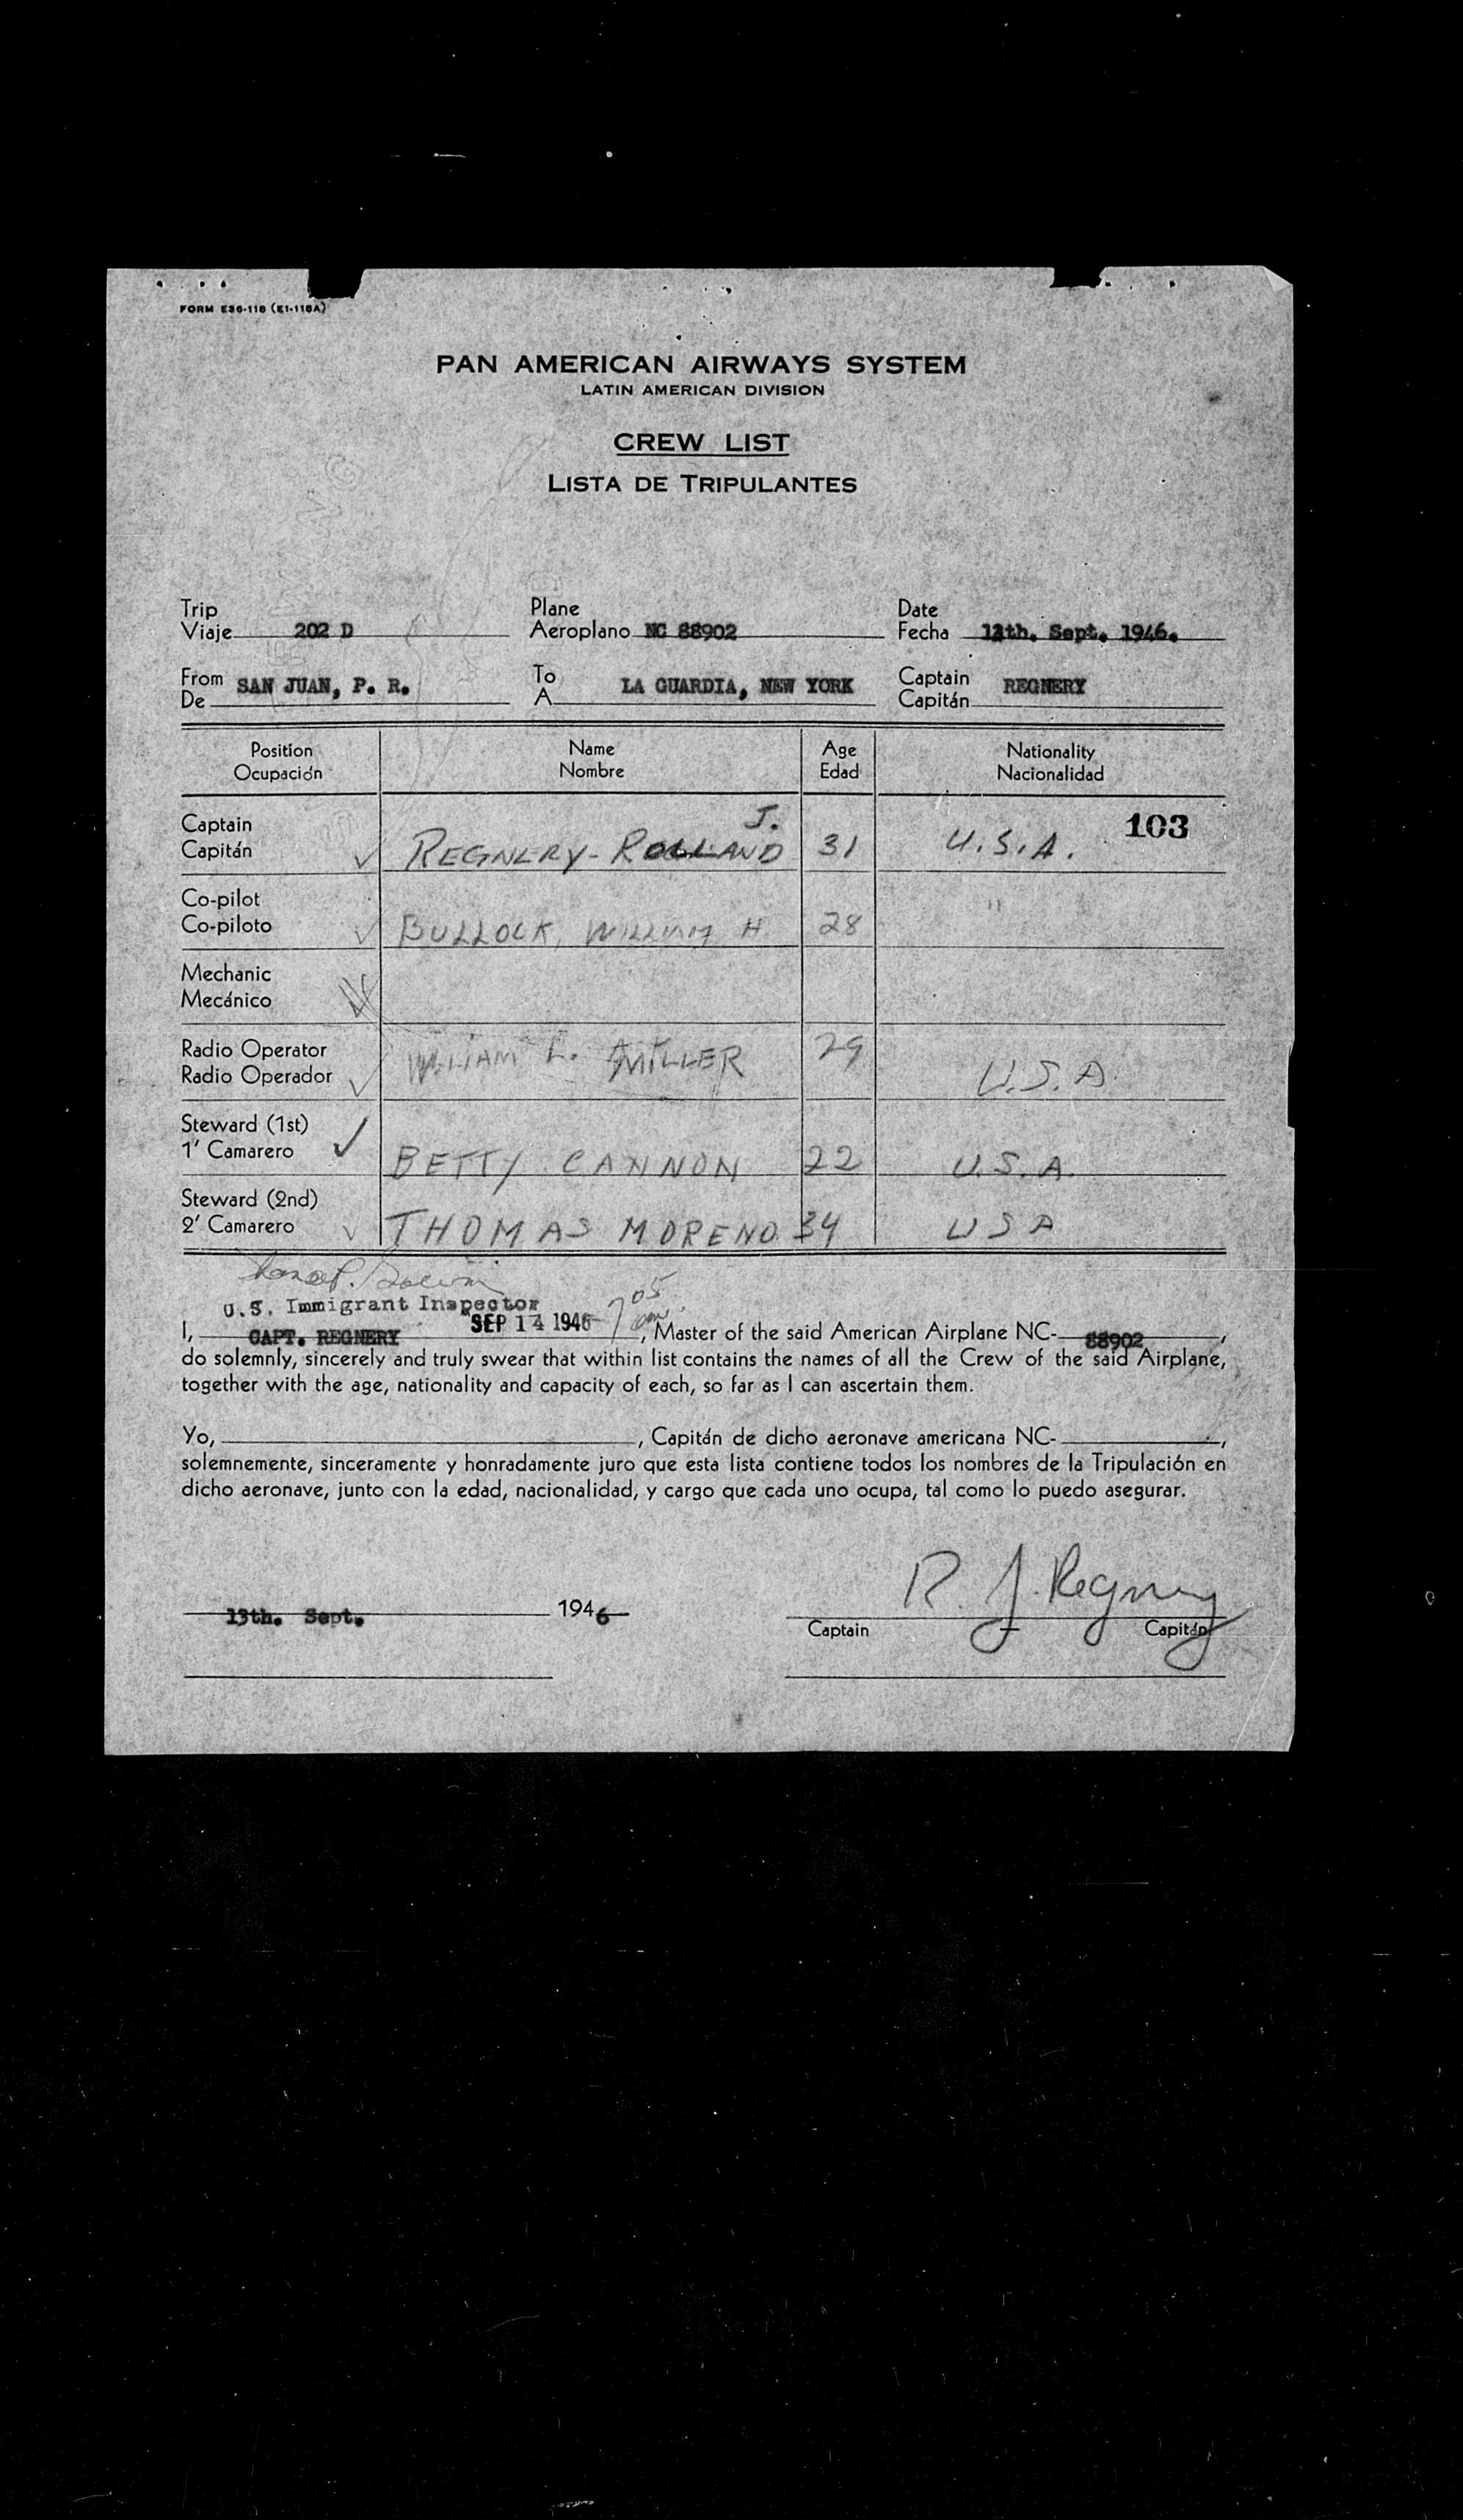 FORM E36-118 (E1-118A)
PAN AMERICAN AIRWAYS SYSTEM
LATIN AMERICAN DIVISION
CREW LIST
LISTA DE TRIPULANTES
Trip Plane Date
Viaje 202 D Aeroplano NC 88902 Fecha 13th. Sept. 1946.
From To Captain
De SAN JUAN, P. R. A LA GUARDIA, NEW YORK Capitán REGNERY
Position Name Age Nationality
Ocupación Nombre Edad Nacionalidad
103
Captain J.
Capitán REGNERY-ROLLAND 31 U.S.A.
Co-pilot
Co-piloto BULLOCK, WILLIAM H. 28 "
Mechanic
Mecánico
Radio Operator
Radio Operador WILLIAM L. MILLER 29 U.S.A.
Steward (1st)
1' Camarero BETTY CANNON 22 U.S.A.
Steward (2nd)
2' Camarero THOMAS MORENO 34 USA
U.S. Immigrant Inspector
SEP 14 1946 705
I, CAPT. REGNERY, Master of the said American Airplane NC- 88902,
do solemnly, sincerely and truly swear that within list contains the names of all the Crew of the said Airplane,
together with the age, nationality and capacity of each, so far as I can ascertain them.
Yo, , Capitán de dicho aeronave americana NC- ,
solemnemente, sinceramente y honradamente juro que esta lista contiene todos los nombres de la Tripulación en
dicho aeronave, junto con la edad, nacionalidad, y cargo que cada uno ocupa, tal como lo puedo asegurar.
R. J. Regnery
13th. Sept. 1946
Captain Capitán